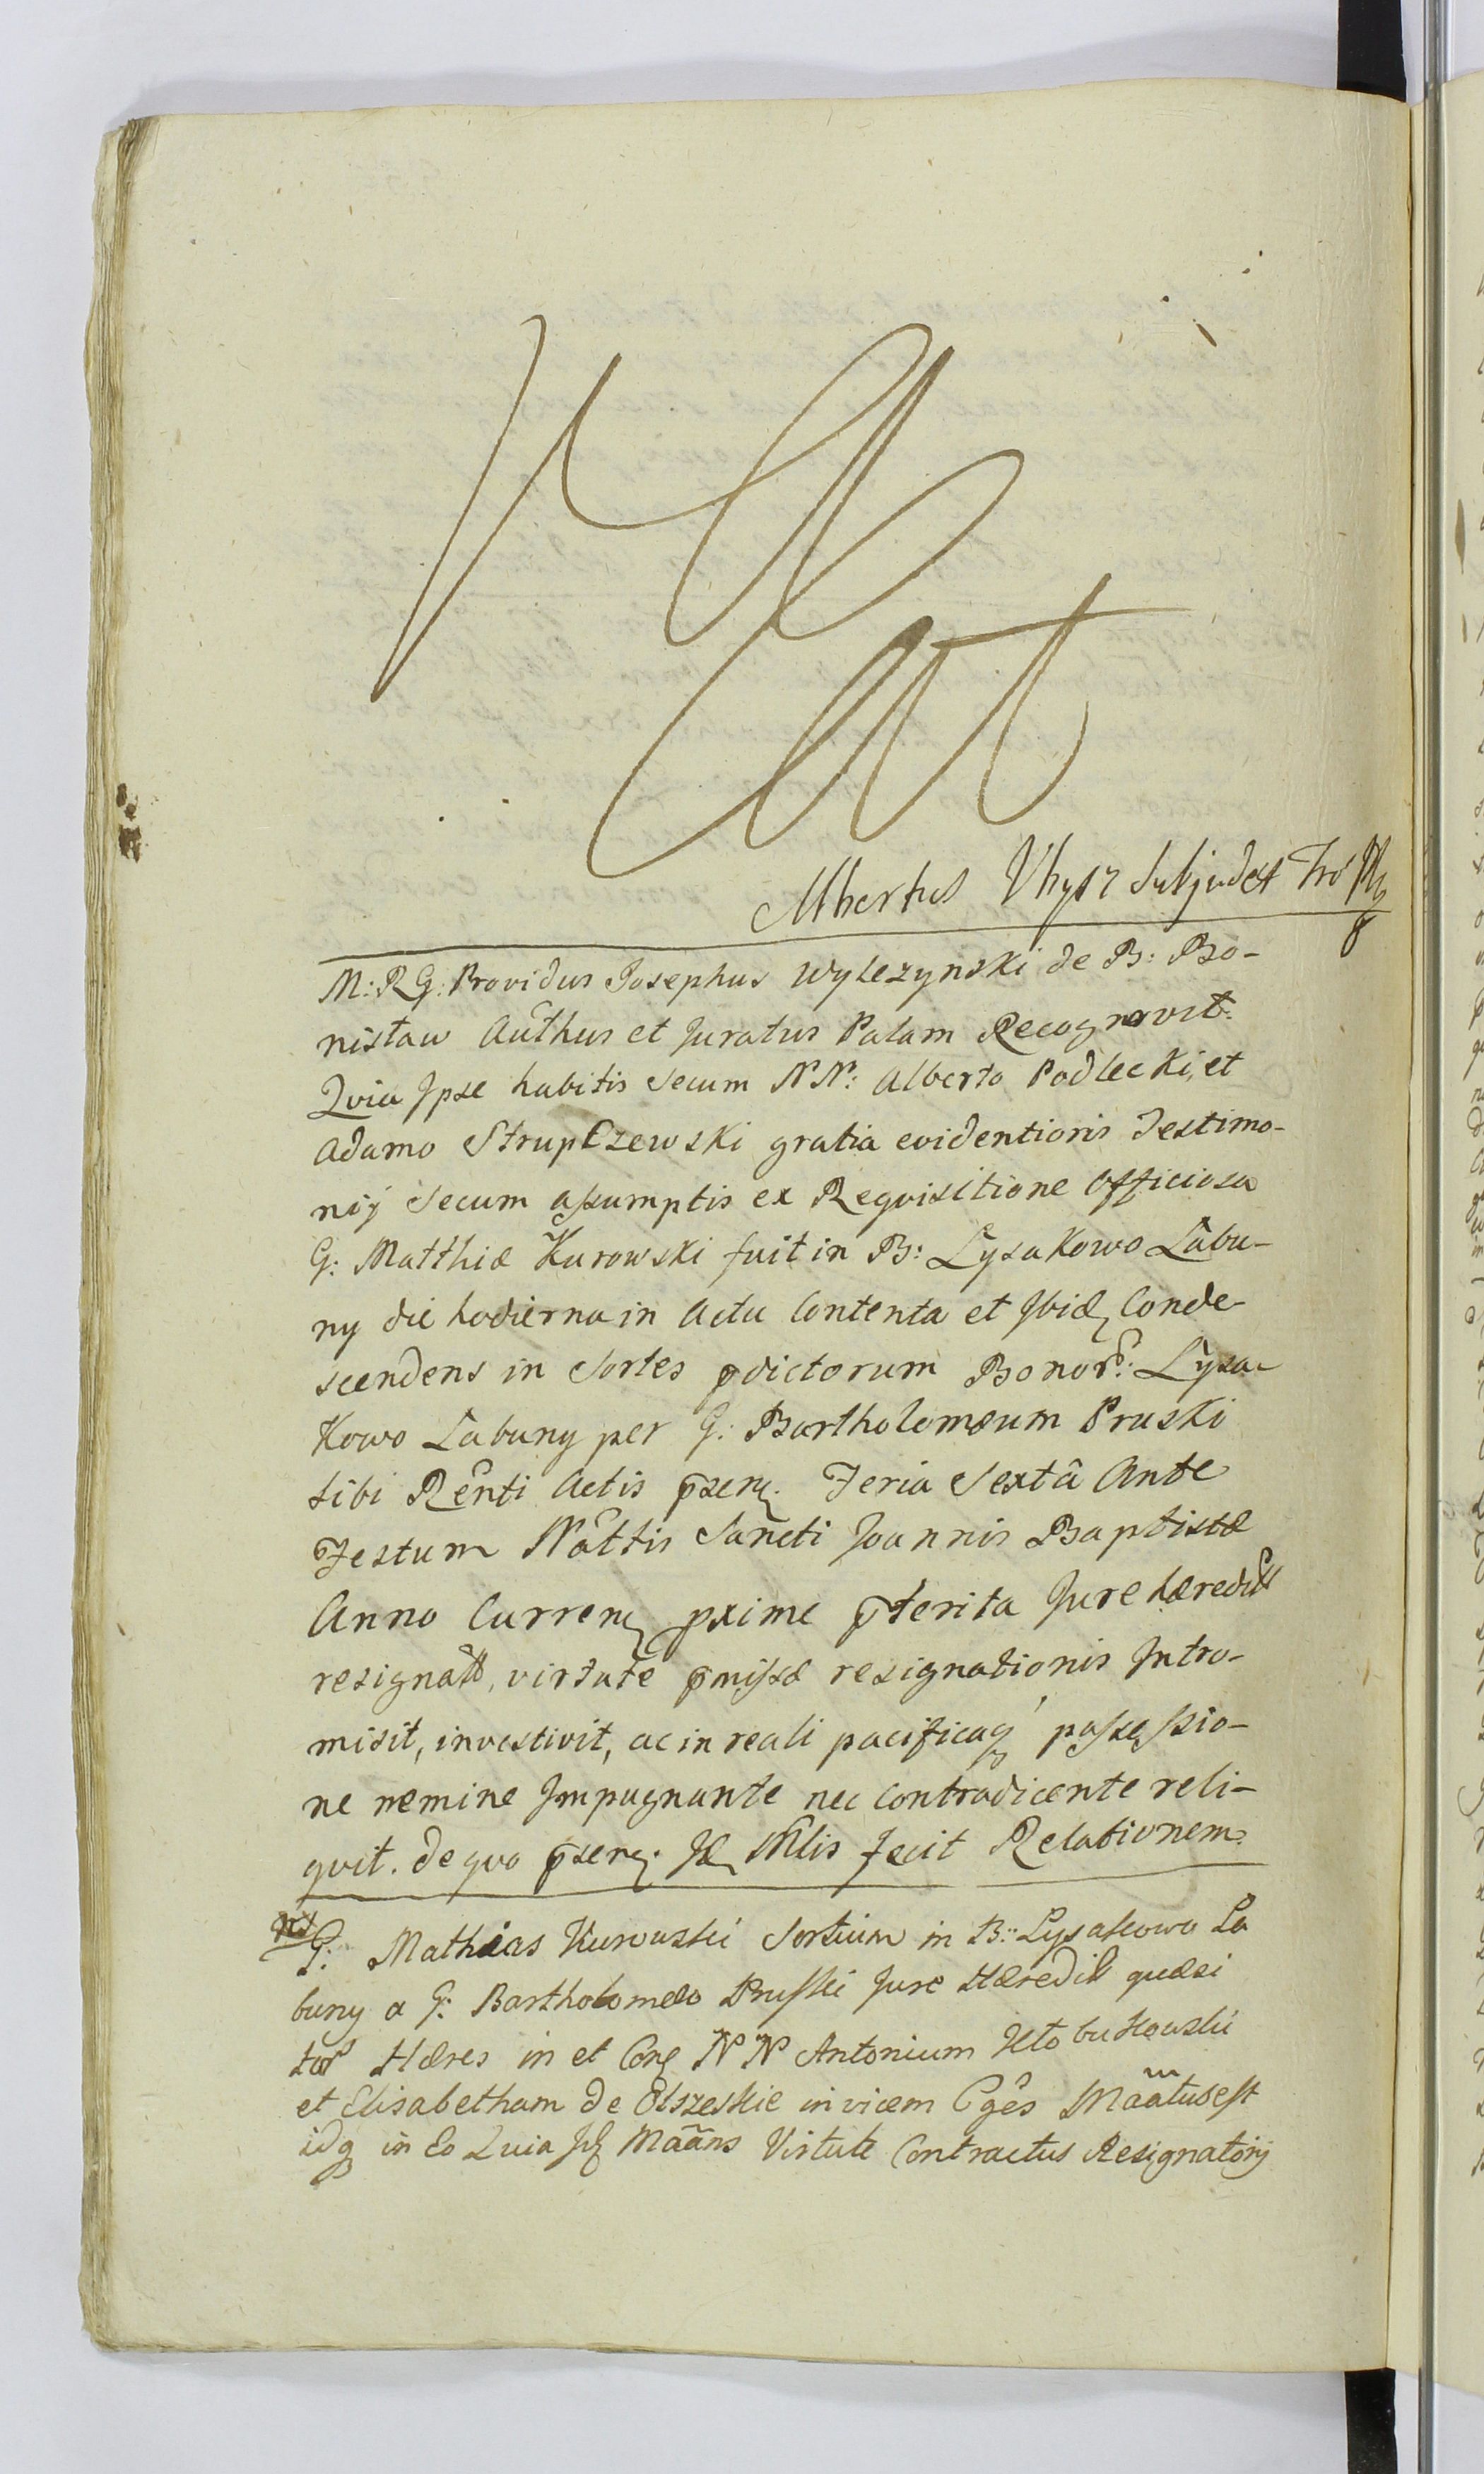 Albertus Vhysz Subjudex
M: R G: Providus Josephus Wylezynski de B: Bo-
nisław Authus et Juratus Palam Recognovit.
Qvia Jpse habitis secum NN: Alberto Podlecki, et
Adamo Strupczewski gratia evidentioris Testimo-
nij secum assumptis ex Reqvisitione Officiosa
G: Matthiæ Kurowski fuit in B: Lysakowo Łabu-
ny die hodierna in Actu Contenta et Jbid Conde-
scendens in Sortes pdictorum Bonor: Lysa-
kowo Łabuny per G: Bartholomæum Pruski
sibi Renti Actis psen. Feria Sexta Ante
Festum Nattis Sancti Joannis Baptistæ
Anno Curren pxime pterita Jure hæredit
resignatt, virtute pmissæ resignationis Intro-
misit, investivit, ac in reali pacificaq possessio-
ne nemine Impugnante nec Contradicente reli-
qvit. de qvo psen. Mlis fecit Relationem.
G: Mathias Kurowski Sortium in B: Lysakowo La
buny a G: Bartholomæo Pruski Jure Hæredit quæsi
tar Hæres in et Con NN Antonium Kłobukowski
et Elisabetham de Olszeskie invicem Cges Maatus est
idq in Eo Quia Maans Virtute Contractus Resignatorij